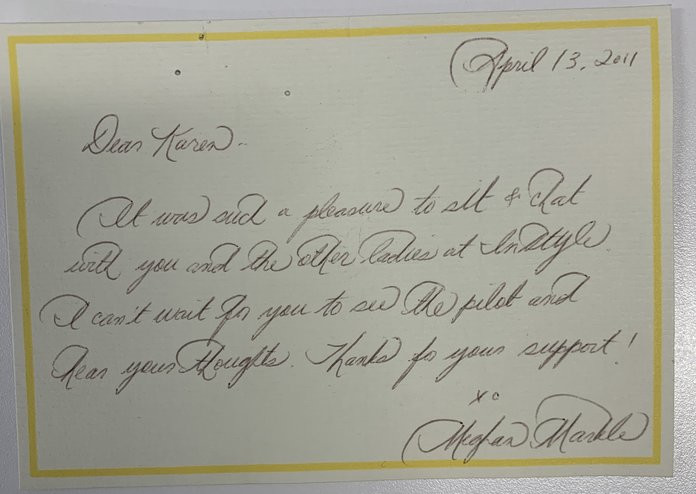 April 13, 2011
Dear Karen -
It was such a pleasure to sit & chat
with you and the other ladies at InStyle.
I can't wait for you to see the pilot and
hear your thoughts. Thanks for your support!
xo
Meghan Markle